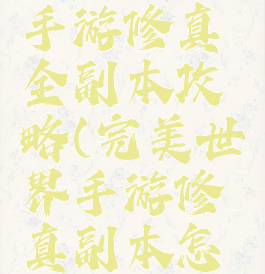 手游修真
全副本攻
略(完美世
界手游修
真副本怎